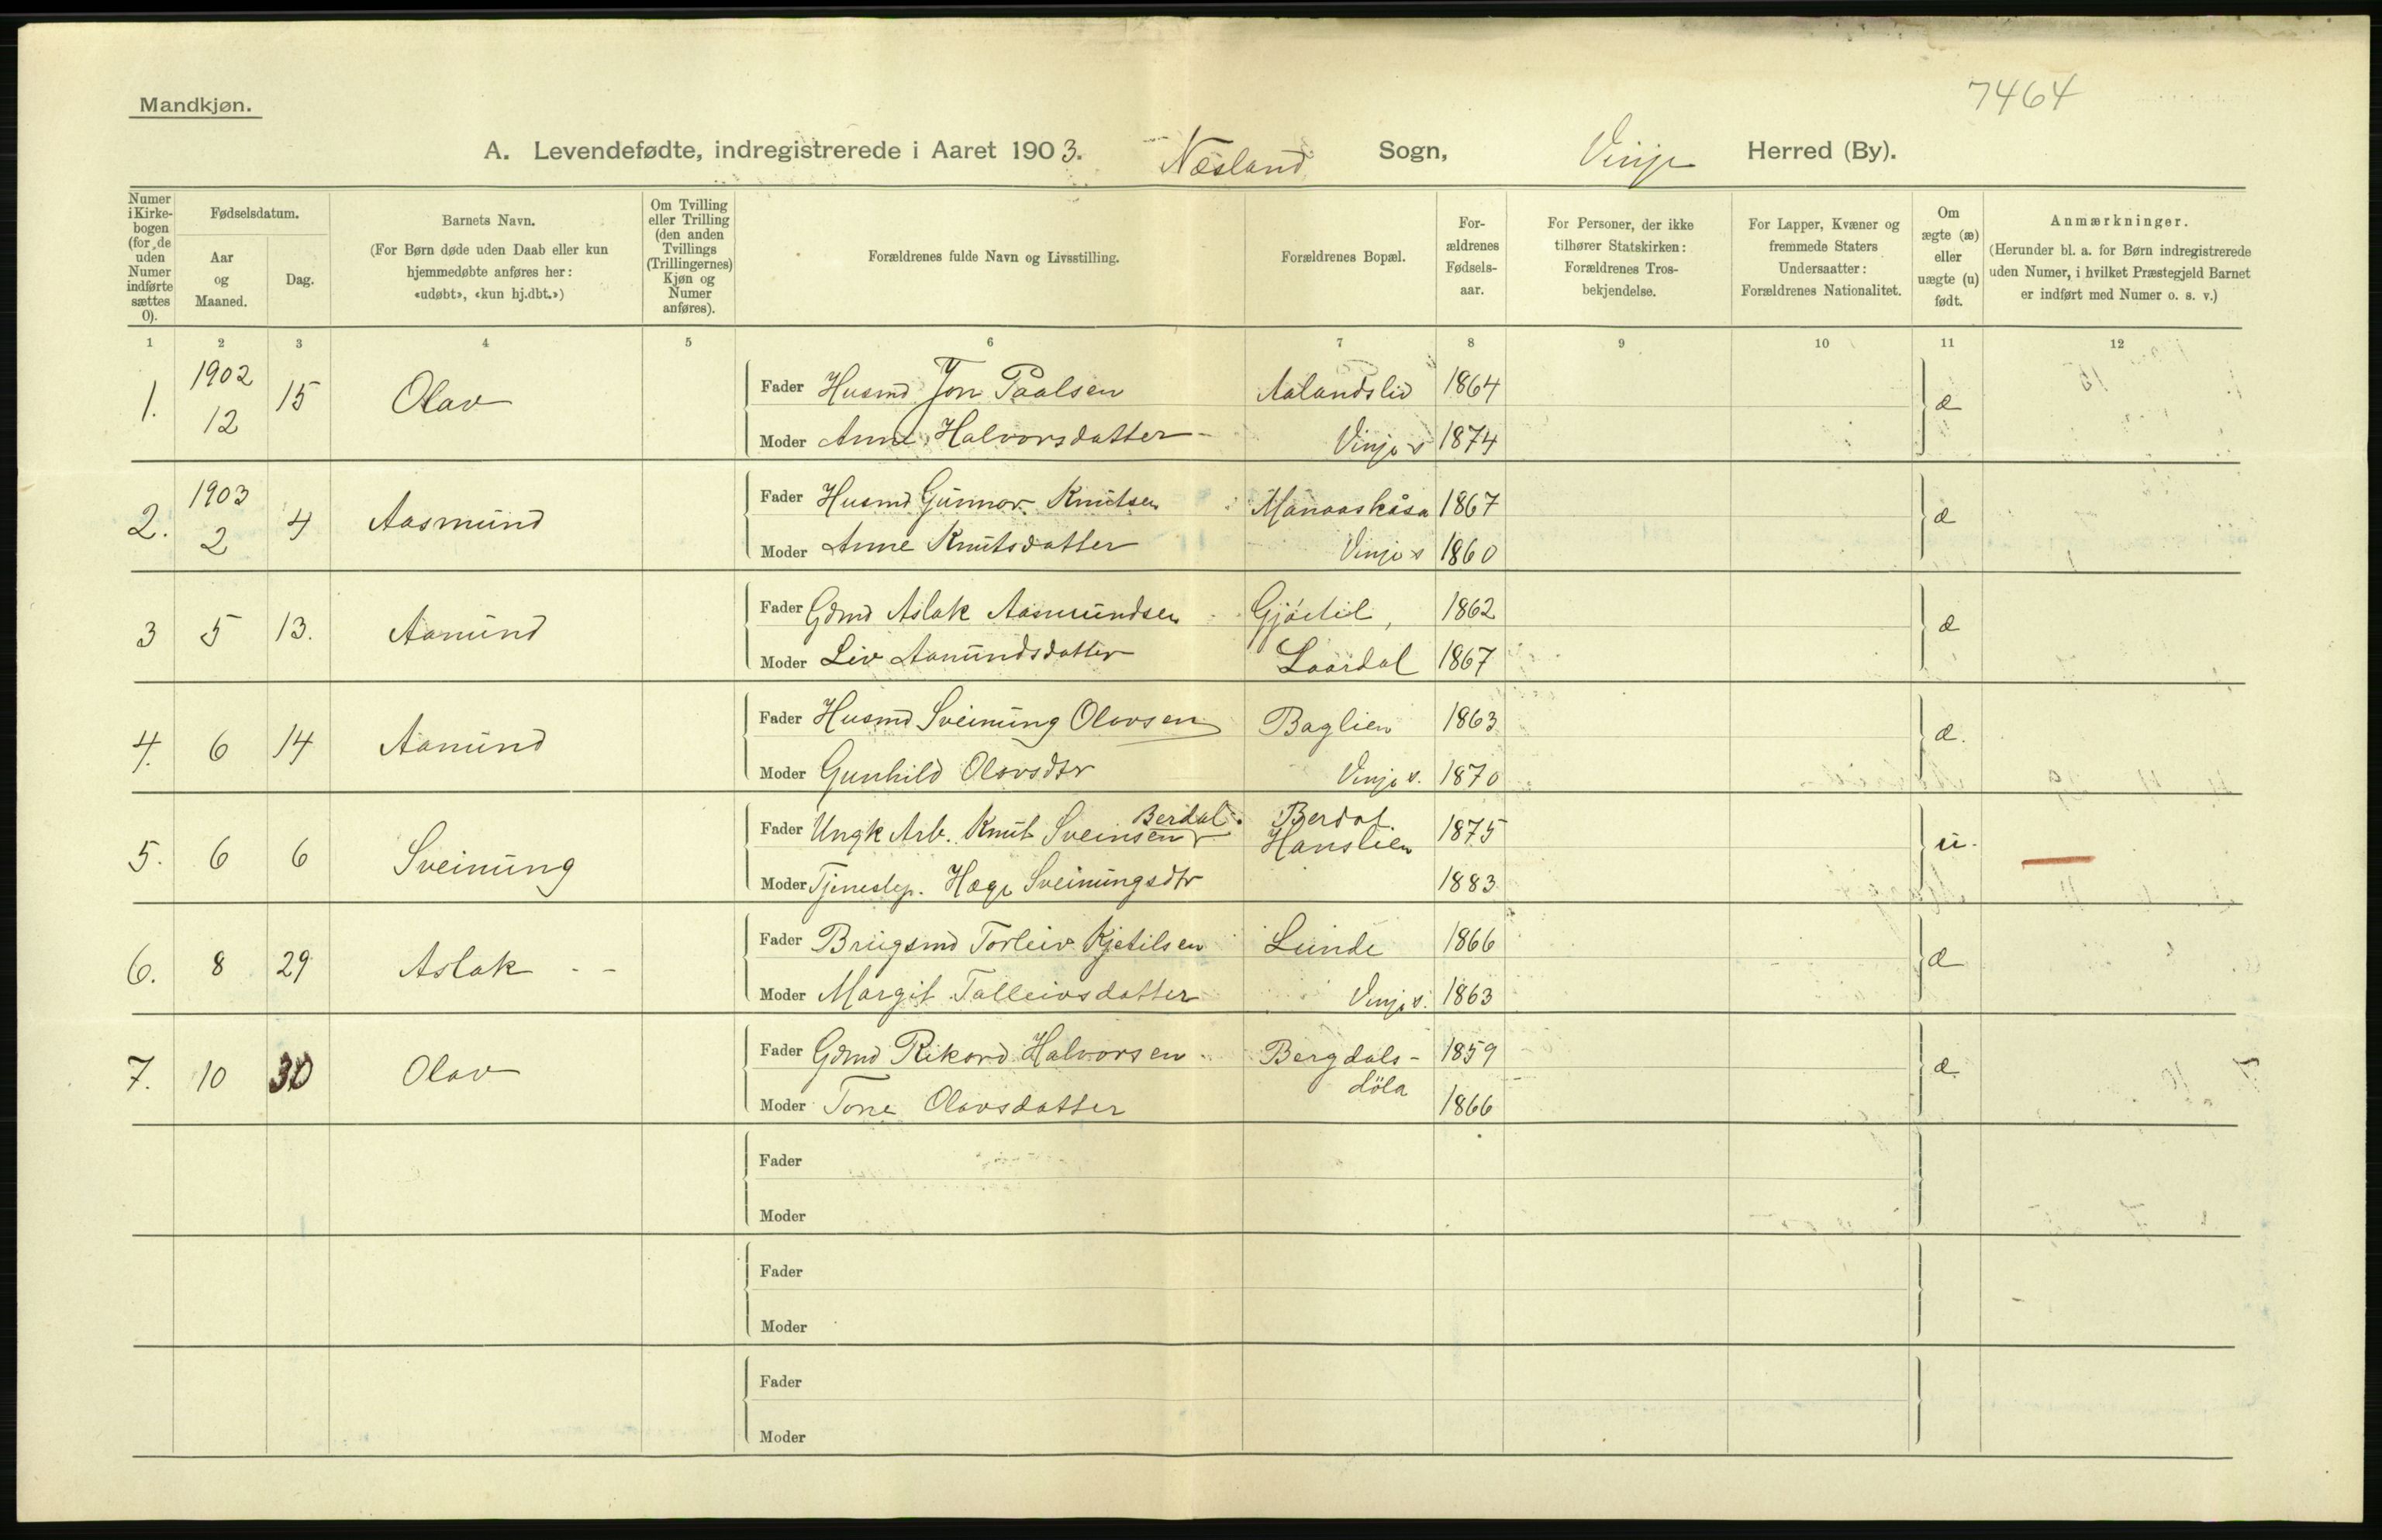 7464
Mandkjøn.
A. Levendefødte, indregistrerede i Aaret 1903. Næsland Sogn, Vinje Herred (By).
Numer i Kirkebogen (for de uden Numer indførte sættes 0).
Fødselsdatum.
Aar og Maaned.
Dag.
Barnets Navn.
(For Børn døde uden Daab eller kun hjemmedøbte anføres her: «udøbt», «kun hj.dbt.»)
Om Tvilling eller Trilling (den anden Tvillings (Trillingernes) Kjøn og Numer anføres).
Forældrenes fulde Navn og Livsstilling.
Forældrenes Bopæl.
Forældrenes Fødselsaar.
For Personer, der ikke tilhører Statskirken: Forældrenes Trosbekjendelse.
For Lapper, Kvæner og fremmede Staters Undersaatter: Forældrenes Nationalitet.
Om ægte (æ) eller uægte (u) født.
Anmærkninger.
(Herunder bl. a. for Børn indregistrerede uden Numer, i hvilket Præstegjeld Barnet er indført med Numer o. s. v.)
1 2 3 4 5 6 7 8 9 10 11 12
1. 1902 12 15 Olav Fader Husmd Jon Paalsen Aalandslid 1864 æ
Moder Anne Halvorsdatter Vinje s 1874
2. 1903 2 4 Aasmund Fader Husmd Gunnar Knutsen Manaaskåsa 1867 æ
Moder Anne Knutsdatter Vinje s 1860
3 5 13. Aamund Fader Gdmd Aslak Aasmundsen 1862 æ
Moder Liv Aamundsdatter Laardal 1867
4. 6 14 Aamund Fader Husmd Sveinung Olavsen Baglien 1863 æ.
Moder Gunhild Olavsdtr Vinje s. 1870
5. 6 6 Sveinung Fader Ungk Arb. Knut Sveinsen Berdal. Berdal Hanslien 1875 u.
Moder Tjenestep. Hæge Sveinungsdtr 1883
6. 8 29 Aslak - - Fader Brugsmd Torleiv Kjetilsen Lunde 1866 æ
Moder Margit Talleivsdatter Vinje s. 1863
7. 10 30 Olav Fader Gdmd Rikard Halvorsen Bergdals- 1859 æ
Moder Tone Olavsdatter döla 1866
Fader
Moder
Fader
Moder
Fader
Moder